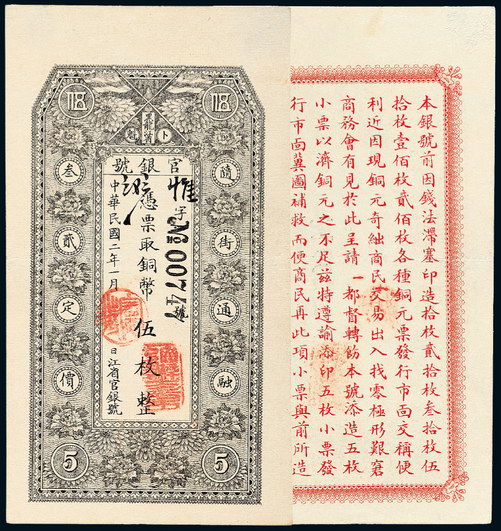 官銀號
隨街通融
惟字№00747號
憑票取銅幣伍枚整
中華民國二年一月 日江省官銀號
叁貳定價
5
5
本銀號前因錢法滯塞印造拾枚貳拾枚叁拾枚伍
拾枚壹佰枚貳佰枚各種銅元票發行市面交稱便
利近因現銅元奇絀商民交易出入找零極形艱窘
商務會有見於此呈請 都督轉飭本號添造五枚
小票以濟銅元之不足茲特遵諭添印五枚小票發
行市面冀圖補救而便商民再此項小票與前所造